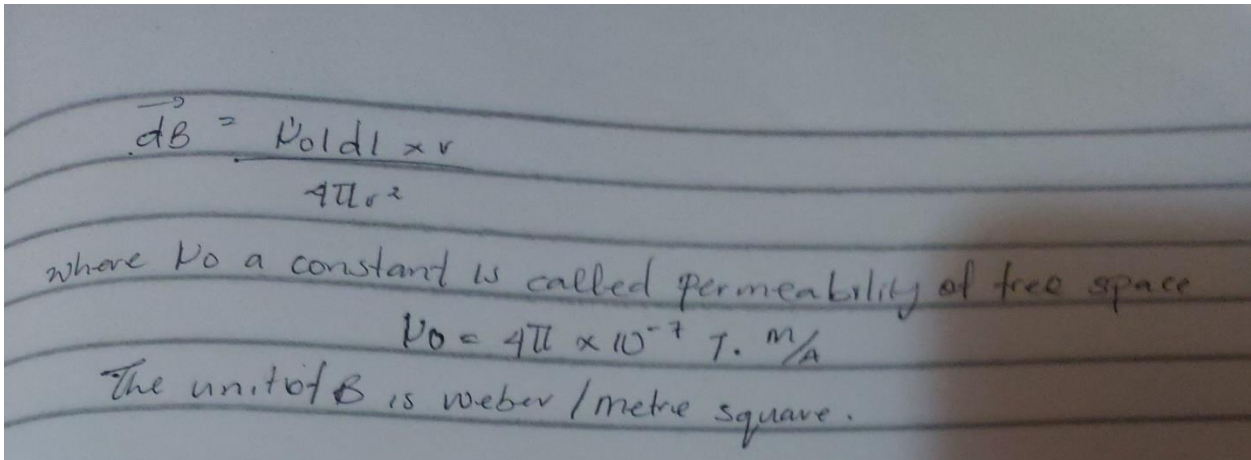 →
dB = μ₀Idl × r
4πr²
where μ₀ a constant is called permeability of free space
μ₀ = 4π × 10⁻⁷ T. m/A
The unit of B is weber / metre square.